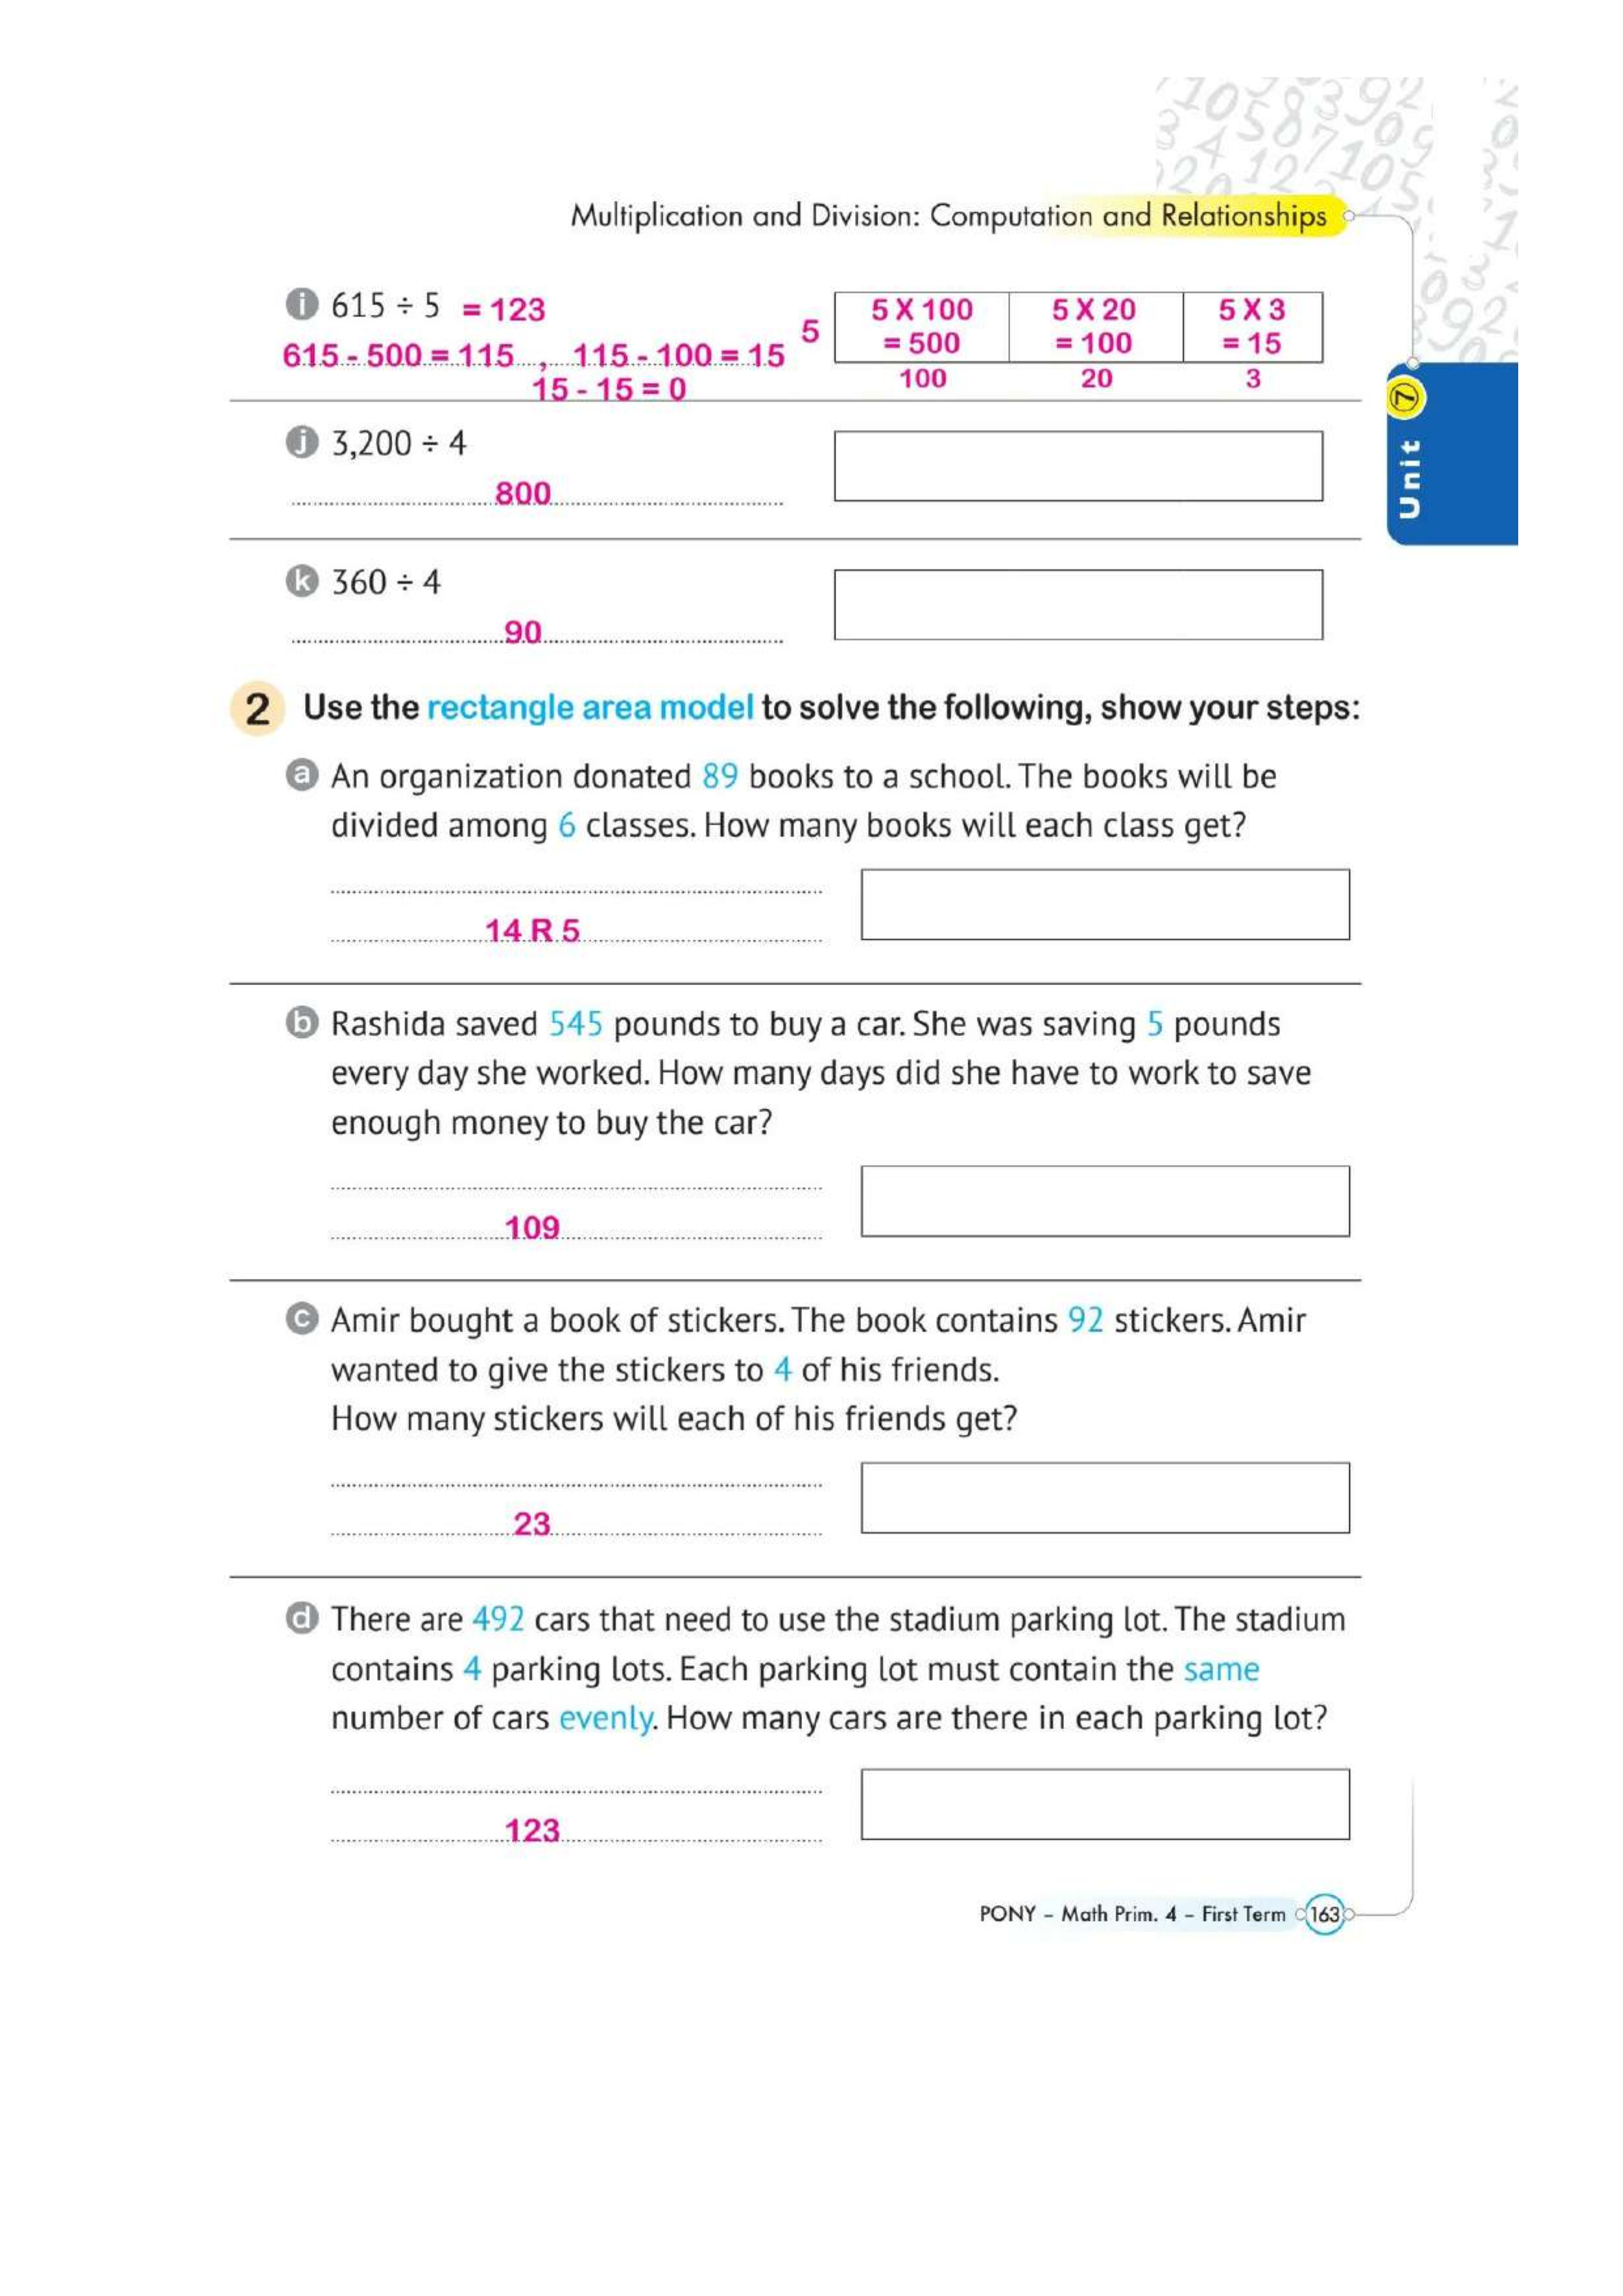 Multiplication and Division: Computation and Relationships
i 615 ÷ 5 = 123
615 - 500 = 115 , 115 - 100 = 15
15 - 15 = 0
5
5 X 100 5 X 20 5 X 3
= 500 = 100 = 15
100 20 3
Unit 7
j 3,200 ÷ 4
800
k 360 ÷ 4
90
2 Use the rectangle area model to solve the following, show your steps:
a An organization donated 89 books to a school. The books will be
divided among 6 classes. How many books will each class get?
14 R 5
b Rashida saved 545 pounds to buy a car. She was saving 5 pounds
every day she worked. How many days did she have to work to save
enough money to buy the car?
109
c Amir bought a book of stickers. The book contains 92 stickers. Amir
wanted to give the stickers to 4 of his friends.
How many stickers will each of his friends get?
23
d There are 492 cars that need to use the stadium parking lot. The stadium
contains 4 parking lots. Each parking lot must contain the same
number of cars evenly. How many cars are there in each parking lot?
123
PONY - Math Prim. 4 - First Term 163